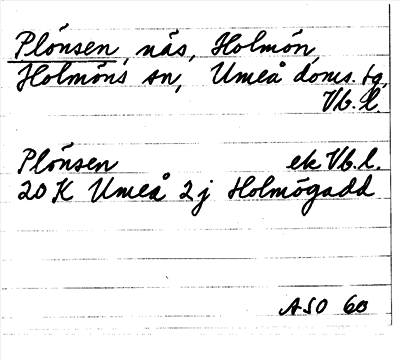 Plönsen, näs, Holmön,
Holmöns sn, Umeå doms. tg,
Vb. l.
Plönsen ek Vb. l.
20 K Umeå 2 j Holmögadd
ASO 60